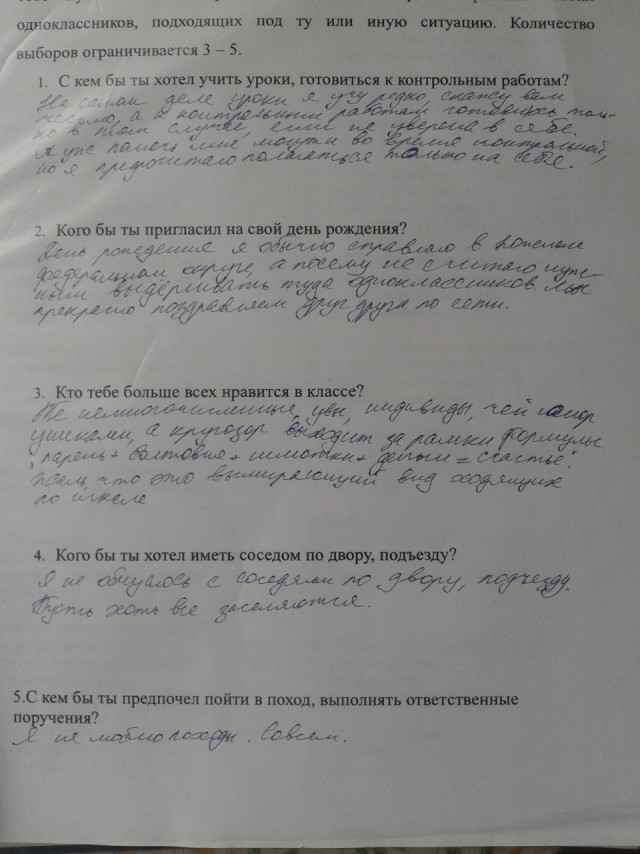 одноклассников, подходящих под ту или иную ситуацию. Количество
выборов ограничивается 3 – 5.
1. С кем бы ты хотел учить уроки, готовиться к контрольным работам?
На самом деле уроки я учу редко, скажу вам
честно, а к контрольным работам готовлюсь толь-
ко в том случае, если не уверена в себе.
А уже помочь мне могут во время контрольной,
но я предпочитаю полагаться только на себя.
2. Кого бы ты пригласил на свой день рождения?
День рождения я обычно справляю в Южном
федеральном округе, а посему не считаю нуж-
ным выдёргивать туда одноклассников. Мы
прекрасно поздравляем друг друга по сети.
3. Кто тебе больше всех нравится в классе?
Те немногочисленные, увы, индивиды, чей юмор
уникален, а кругозор выходит за рамки формулы
"парень + болтовня + шмотки + деньги = счастье".
Жаль, что это вымирающий вид ходящих
по школе
4. Кого бы ты хотел иметь соседом по двору, подъезду?
Я не общаюсь с соседями по двору, подъезду.
Пусть хоть все заселяются.
5.С кем бы ты предпочел пойти в поход, выполнять ответственные
поручения?
Я не люблю походы. Совсем.